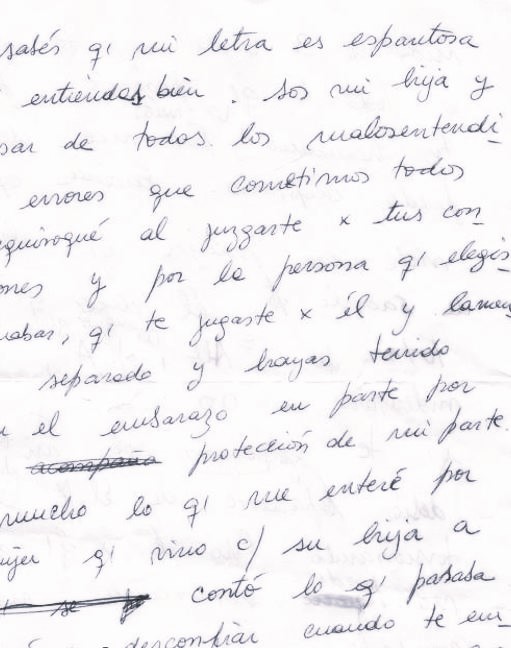 sabés q' mi letra es espantosa
entiendas bien. Sos mi hija y
sar de todos los malosentendi
errores que cometimos todos
quivoqué al juzgarte x tus con
ones y por la persona q' elegis
nabar, q' te jugaste x él y lamen
separado y hayas tenido
el embarazo en parte por
acompaña protección de mi parte.
mucho lo q' me enteré por
ujer q' vino c/ su hija a
se contó lo q' pasaba
desconfiar cuando te em